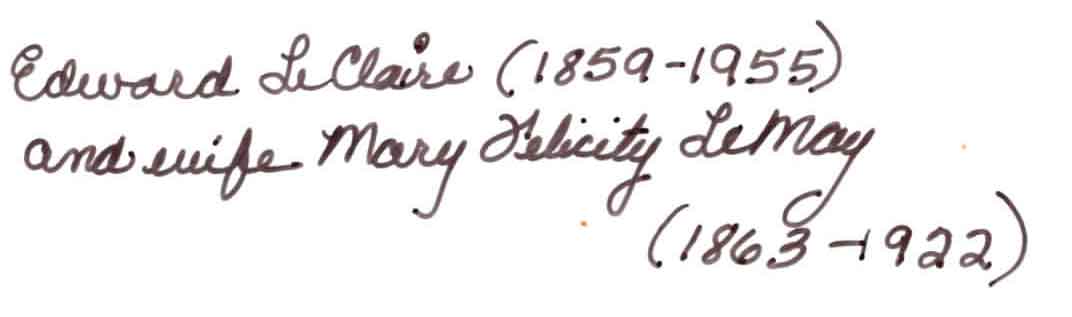 Edward LeClaire (1859-1955)
and wife Mary Felicity LeMay
(1863-1922)